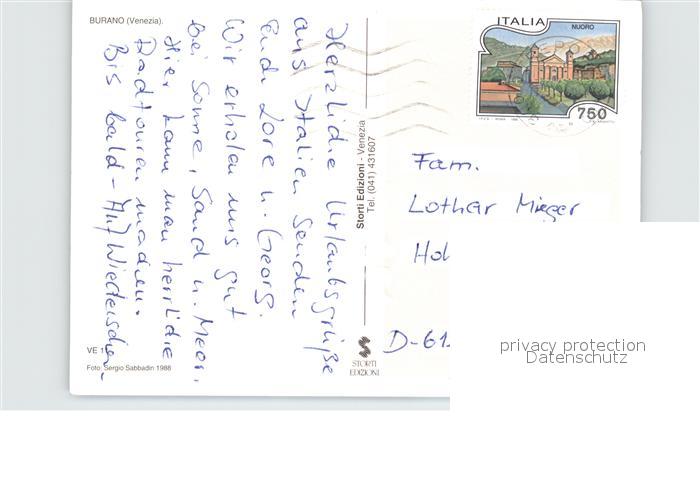 BURANO (Venezia).
Herzliche Urlaubsgrüße
aus Italien senden
Euch Lore u. Georg.
Wir erholen uns gut
bei Sonne, Sand u. Meer.
Hier kann man herrliche
Radtouren machen.
Bis bald - Auf Wiedersehen
VE 1
Foto: Sergio Sabbadin 1988
Storti Edizioni - Venezia
Tel. (041) 431607
STORTI
EDIZIONI
ITALIA
NUORO
750
Fam.
Lothar Mieger
Hol
D-61
privacy protection
Datenschutz